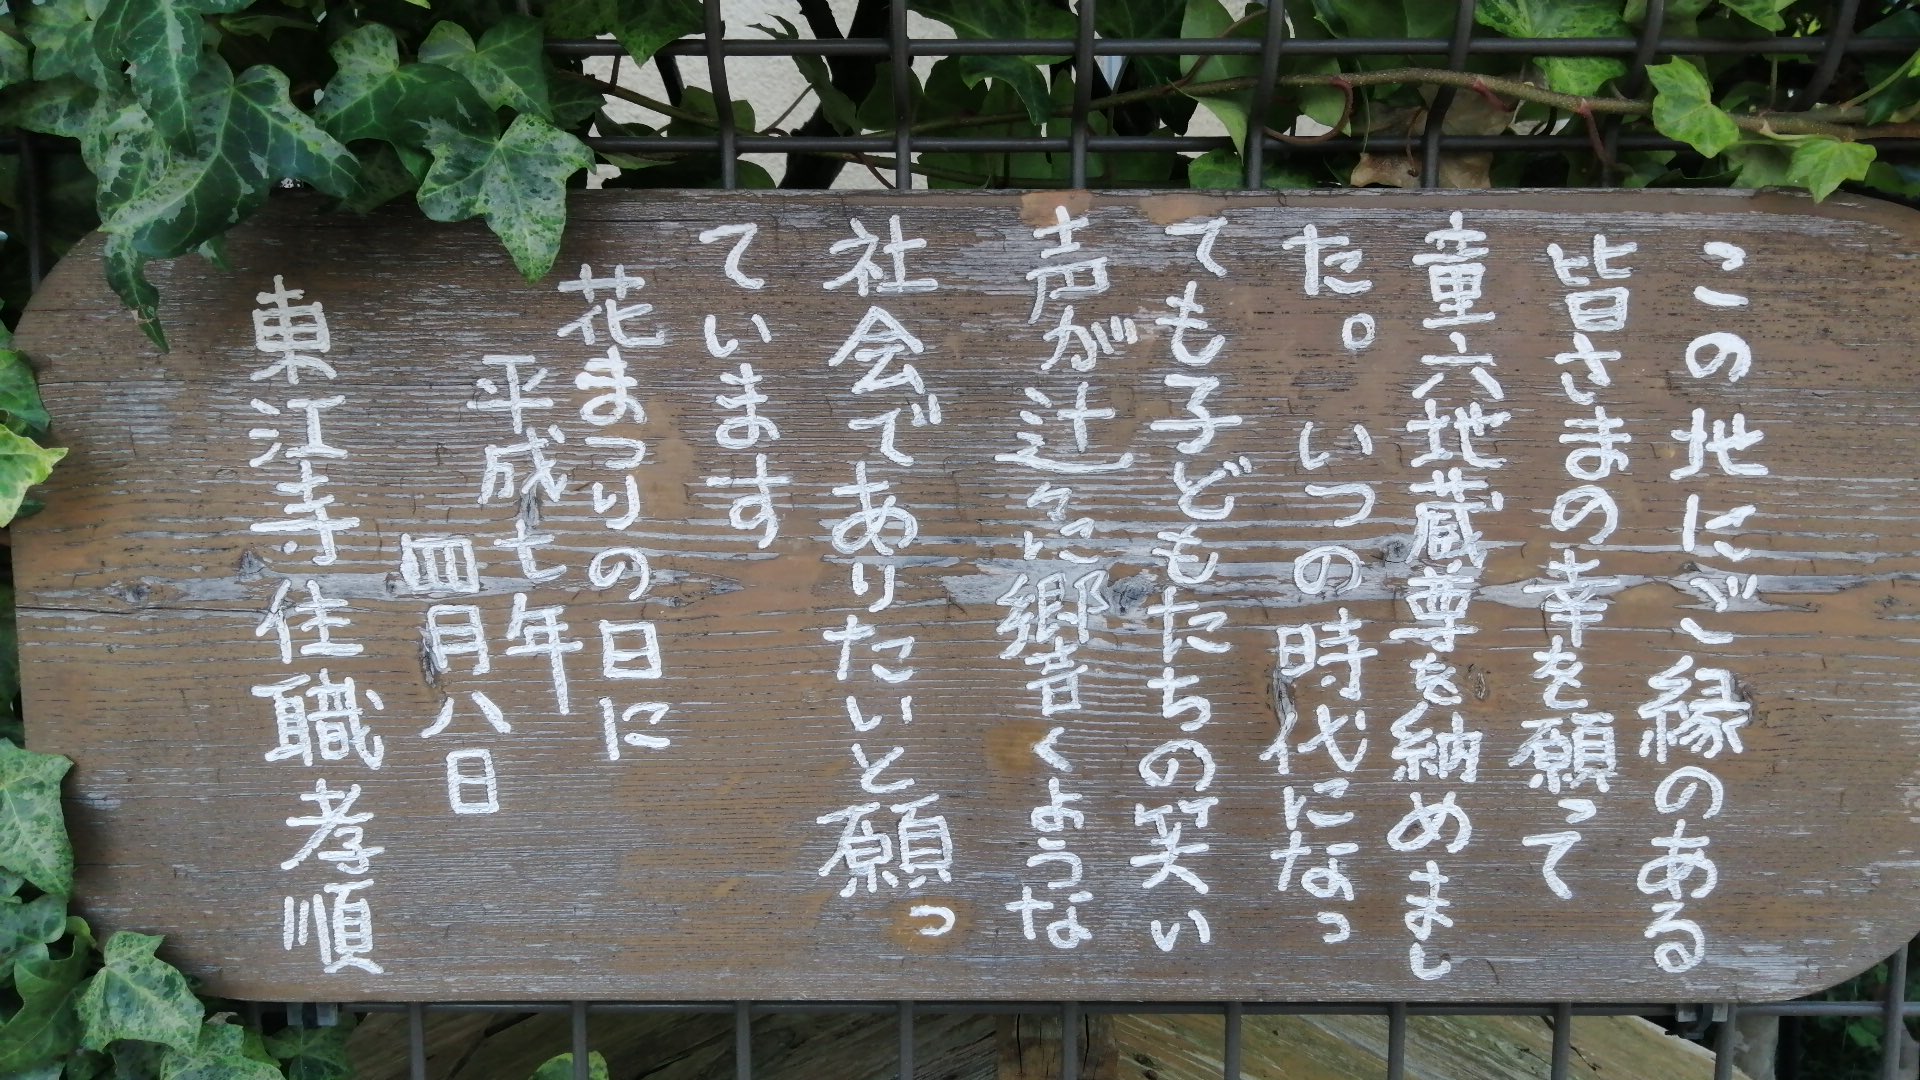 この地にご縁のある
皆さまの幸を願って
童六地蔵尊を納めまし
た。いつの時代になっ
ても子どもたちの笑い
声が辻々に響くような
社会でありたいと願っ
ています
花まつりの日に
平成七年
四月八日
東江寺住職孝順